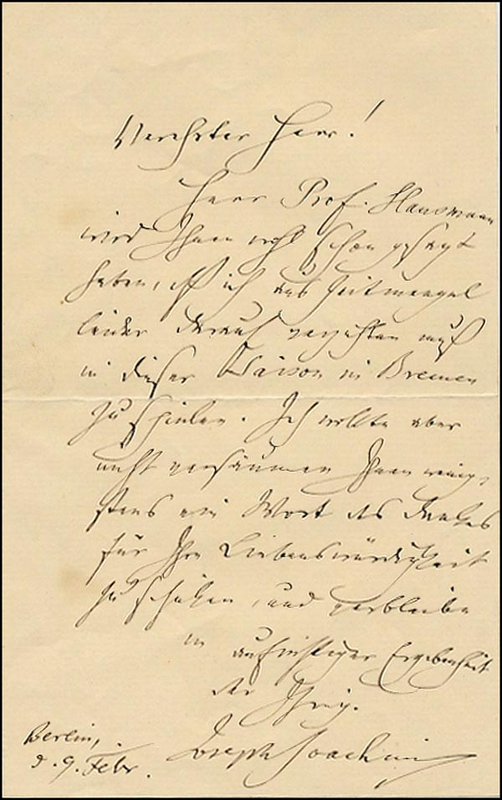 Verehrter Herr!
Herr Prof. Hausmann
wird Ihnen wohl schon gesagt
haben, daß ich aus Zeitmangel
leider darauf verzichten muß
in dieser Saison in Bremen
zu spielen. Ich wollte aber
nicht versäumen Ihnen wenig-
stens ein Wort des Dankes
für Ihre Liebenswürdigkeit
zu schicken, und verbleibe
in aufrichtiger Ergebenheit
der Ihrig.
Joseph Joachim
Berlin,
d. 9. Febr.